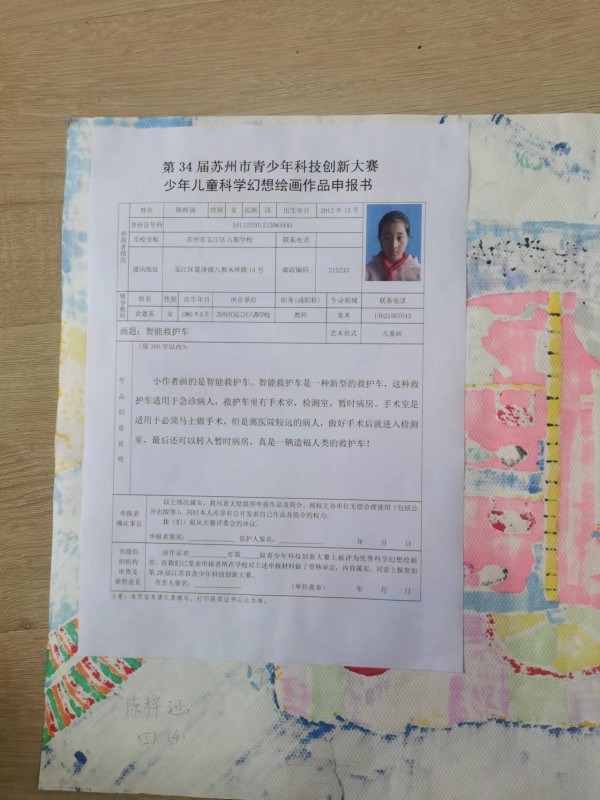 第34届苏州市青少年科技创新大赛
少年儿童科学幻想绘画作品申报书
申报者情况
姓名 陈梓涵 性别 女 民族 汉 出生年月 2012年12月
身份证号码
学校全称 苏州市吴江区八都学校 联系电话
通讯地址 吴江区震泽镇八都木怀路14号 邮政编码 215233
辅导教师
姓名 性别 出生年月 所在单位 职务(或职称) 专业领域 联系电话
女 苏州市吴江区八都学校 教师 美术 13621567043
画题:智能救护车 艺术形式 儿童画
作品创意说明
(限300字以内):
小作者画的是智能救护车。智能救护车是一种新型的救护车,这种救
护车适用于急诊病人,救护车里有手术室,检测室,暂时病房。手术室是
适用于必须马上做手术,但是离医院较远的病人,做好手术后就进入检测
室,最后还可以转入暂时病房,真是一辆造福人类的救护车!
申报者确认事宜
以上情况属实。我同意无偿提供申报作品及简介。授权主办单位无偿合理使用(包括公
开出版等),同时本人亦享有公开发表自己作品及简介的权力。
我(们)服从大赛评委会的决议。
申报者签名: 监护人签名: 年 月 日
该作品在 市第 届青少年科技创新大赛上被评为优秀科学幻想绘画
奖,在我们已要求申报者所在学校对上述申报材料做了资格审定,内容属实,同意上报参加
第28届江苏省青少年科技创新大赛。
负责人签名: (单位盖章) 年 月 日
注意:本页信息请认真填写,打印获奖证书以此为准。
陈梓